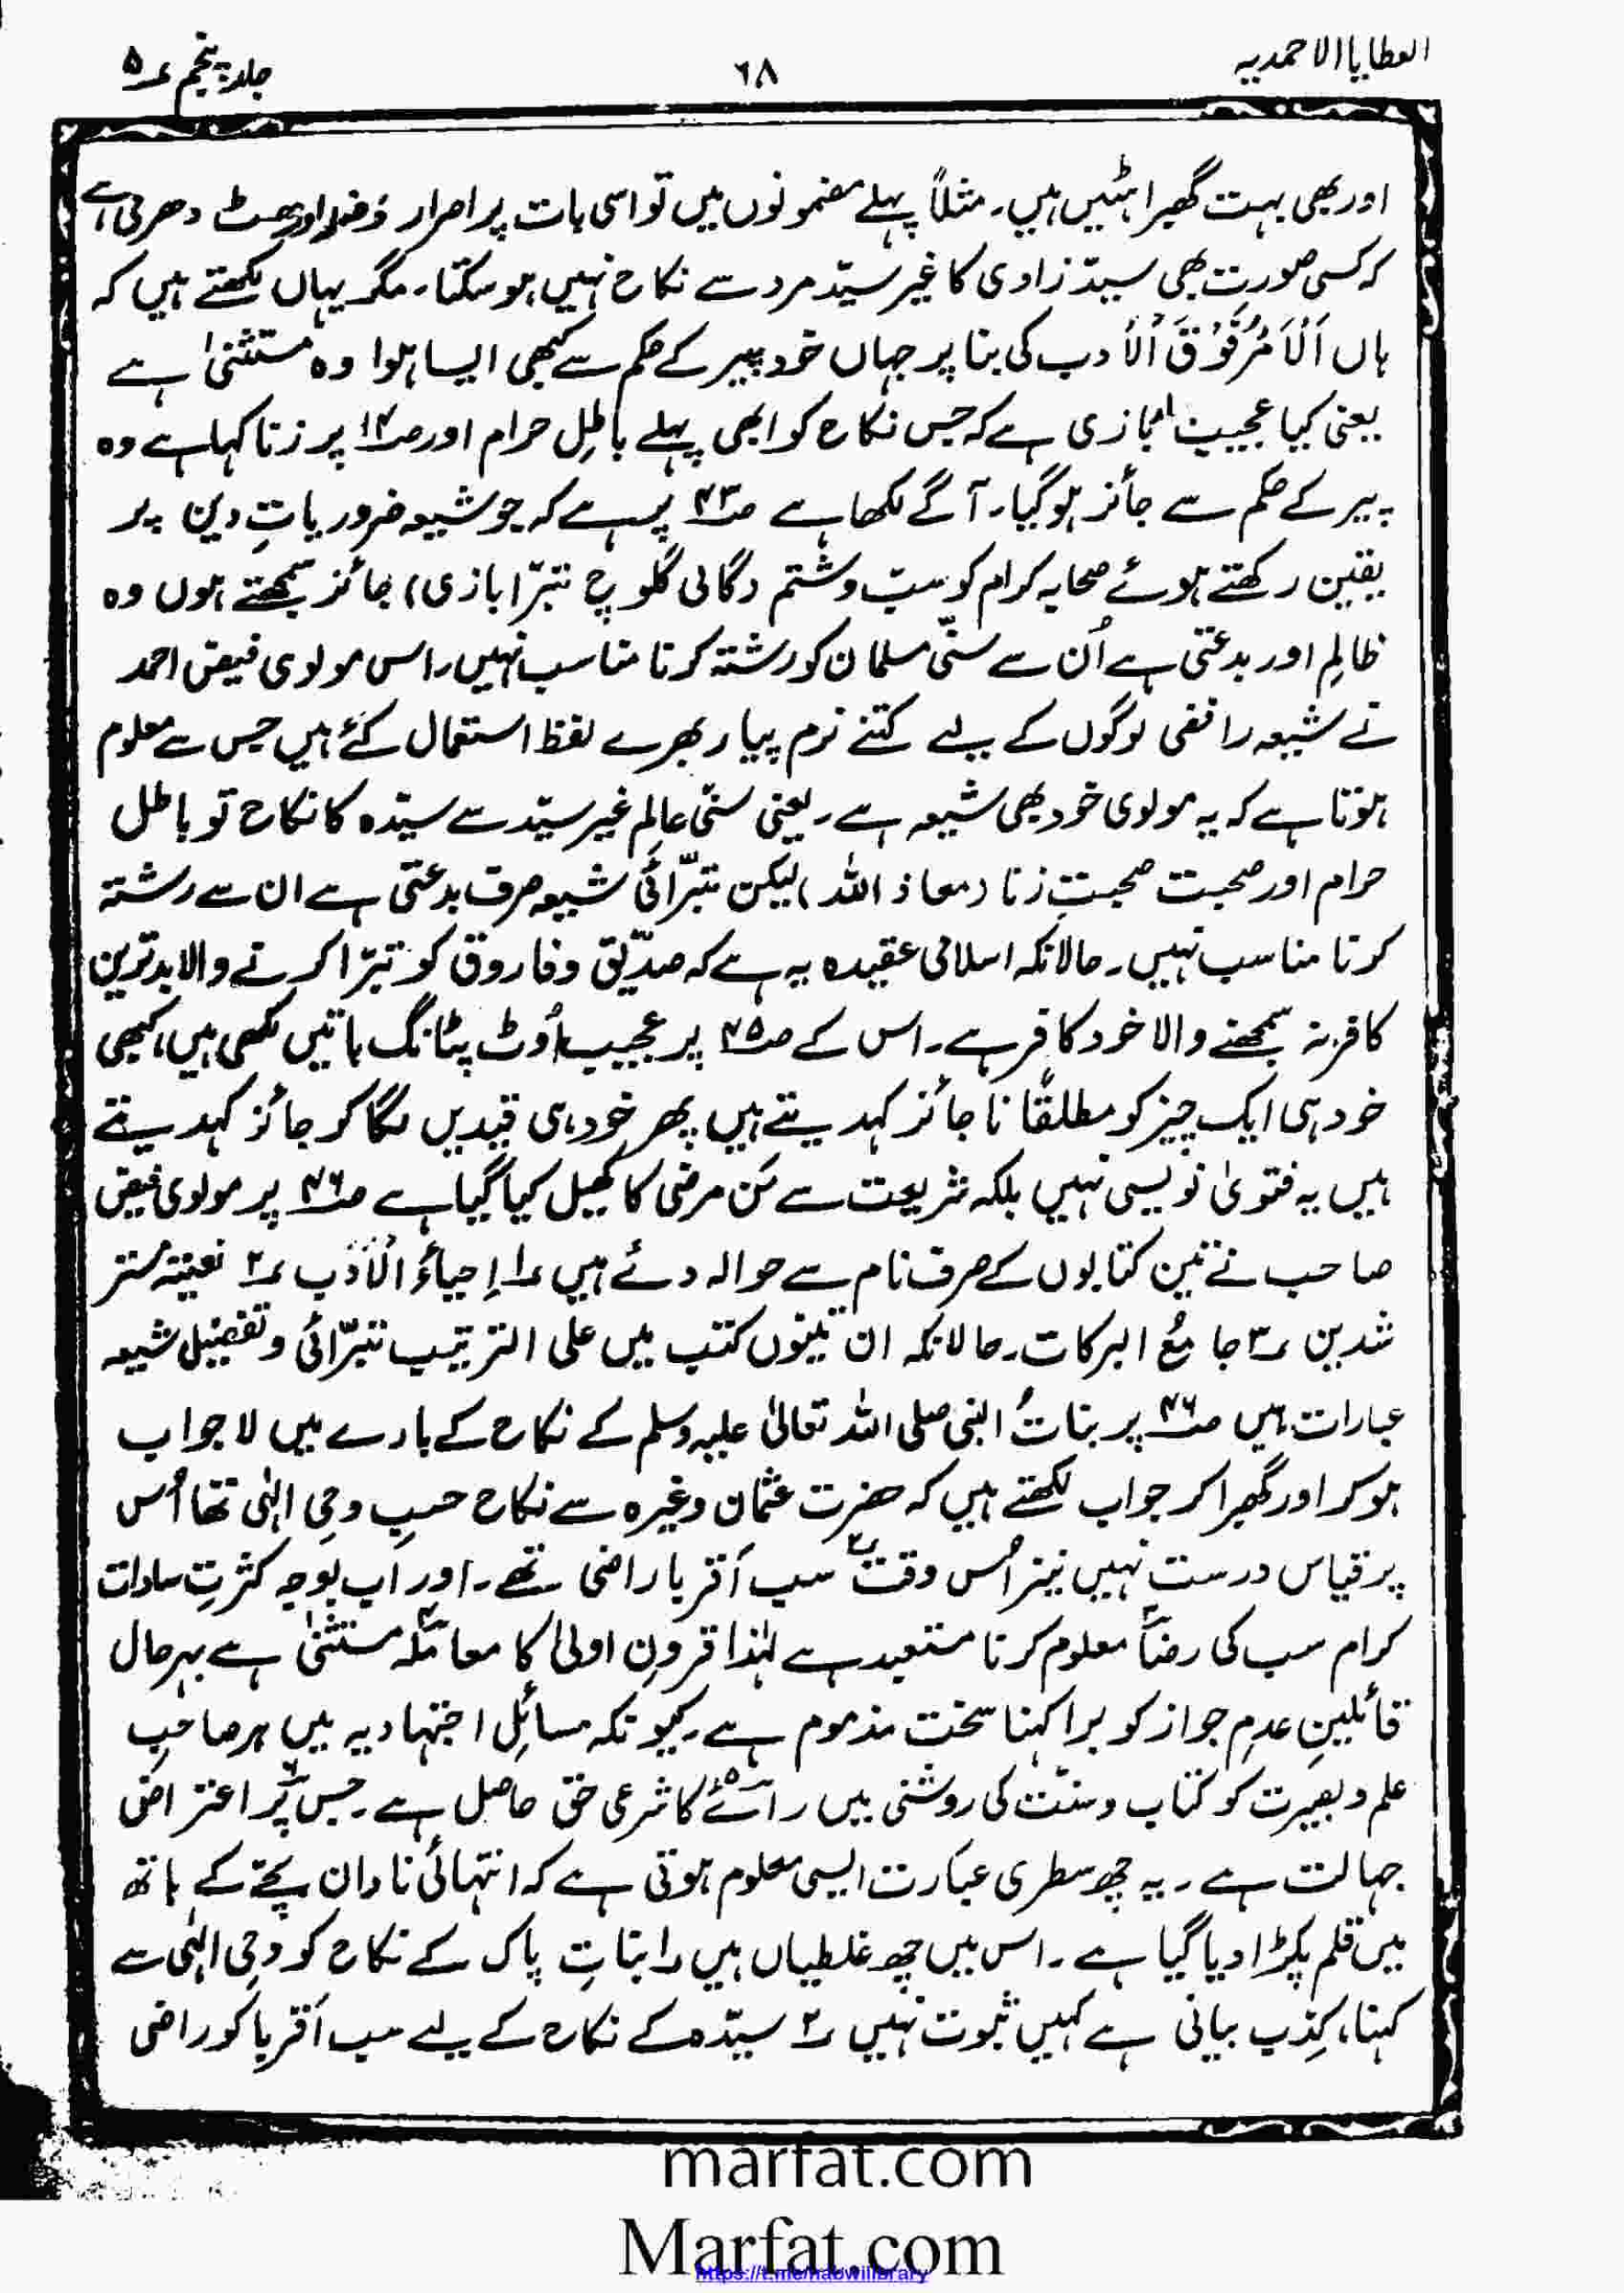 العطایا الاحمدیہ
۶۸
جلد پنجم ۵
اور بھی بہت گھبراہٹیں ہیں۔ مثلاً پہلے مضمونوں میں تو اسی بات پر اصرار و ضد اور ہٹ دھرمی ہے
کہ کسی صورت بھی سیّد زادی کا غیر سیّد مرد سے نکاح نہیں ہو سکتا۔ مگر یہاں لکھتے ہیں کہ
ہاں اَلْاَمْرُ فَوْقَ الْاَدب کی بنا پر جہاں خود پیر کے حکم سے کبھی ایسا ہوا وہ مستثنیٰ ہے
یعنی کیا عجیب بازی ہے کہ جس نکاح کو ابھی پہلے باطل حرام اور صـ۱۴ پر زنا کہا ہے وہ
پیر کے حکم سے جائز ہو گیا۔ آگے لکھا ہے صـ۴۳ پر ہے کہ جو شیعہ ضروریاتِ دین پر
یقین رکھتے ہوئے صحابہ کرام کو سبّ و شتم (گالی گلوچ تبرّا بازی) جائز سمجھتے ہوں وہ
ظالم اور بدعتی ہے اُن سے سنّی مسلمان کو رشتہ کرنا مناسب نہیں۔ اس مولوی فیض احمد
نے شیعہ رافضی لوگوں کے لیے کتنے نرم پیار بھرے لفظ استعمال کئے ہیں جس سے معلوم
ہوتا ہے کہ یہ مولوی خود بھی شیعہ ہے۔ یعنی سنّی عالم غیر سیّد سے سیّدہ کا نکاح تو باطل
حرام اور صحبت صحبتِ زنا (معاذ اللہ) لیکن تبرّائی شیعہ صرف بدعتی ہے ان سے رشتہ
کرنا مناسب نہیں۔ حالانکہ اسلامی عقیدہ یہ ہے کہ صدّیق و فاروق کو تبرّا کرنے والا بدترین
کافر نہ سمجھنے والا خود کافر ہے۔ اس کے صـ۴۵ پر عجیب اُوٹ پٹانگ باتیں لکھی ہیں، کبھی
خود ہی ایک چیز کو مطلقًا ناجائز کہدیتے ہیں پھر خود ہی قیدیں لگا کر جائز کہدیتے
ہیں یہ فتویٰ نویسی نہیں بلکہ شریعت سے مَن مرضی کا کھیل کیا گیا ہے صـ۴۶ پر مولوی فیض
صاحب نے تین کتابوں کے صرف نام سے حوالہ دئے ہیں ۱ اِحیاءُ الْاَدَب ۲ مستر
شدین ۳ جامعُ البرکات۔ حالانکہ ان تینوں کتب میں علی الترتیب تبرّائی و تفضیلی شیعہ
عبارات ہیں صـ۴۶ پر بناتُ النبی صلی اللہ تعالیٰ علیہ وسلم کے نکاح کے بارے میں لاجواب
ہو کر اور گھبرا کر جواب لکھتے ہیں کہ حضرت عثمان وغیرہ سے نکاح حسبِ وحیِ الٰہی تھا اُس
پر قیاس درست نہیں نیز اُس وقت ۲ سب اَقربا راضی تھے۔ اور اب بوجہ کثرتِ سادات
کرام سب کی رضا ۳ معلوم کرنا مستبعد ہے لہٰذا قرونِ اولیٰ کا معاملہ ۴ مستثنیٰ ہے بہرحال
قائلینِ عدمِ جواز کو برا کہنا سخت مذموم ہے۔ کیونکہ مسائلِ اجتہادیہ میں ہر صاحبِ
علم و بصیرت کو کتاب و سنّت کی روشنی میں رائے ۵ کا شرعی حق حاصل ہے۔ جس پر ۶ اعتراض
جہالت ہے۔ یہ چھ سطری عبارت ایسی معلوم ہوتی ہے کہ انتہائی نادان بچّے کے ہاتھ
میں قلم پکڑا دیا گیا ہے۔ اس میں چھ غلطیاں ہیں ۱ بناتِ پاک کے نکاح کو وحیِ الٰہی سے
کہنا، کِذب بیانی ہے کہیں ثبوت نہیں ۲ سیّدہ کے نکاح کے لیے سب اَقربا کو راضی
marfat.com
Marfat.com
https://t.me/nabwilibrary